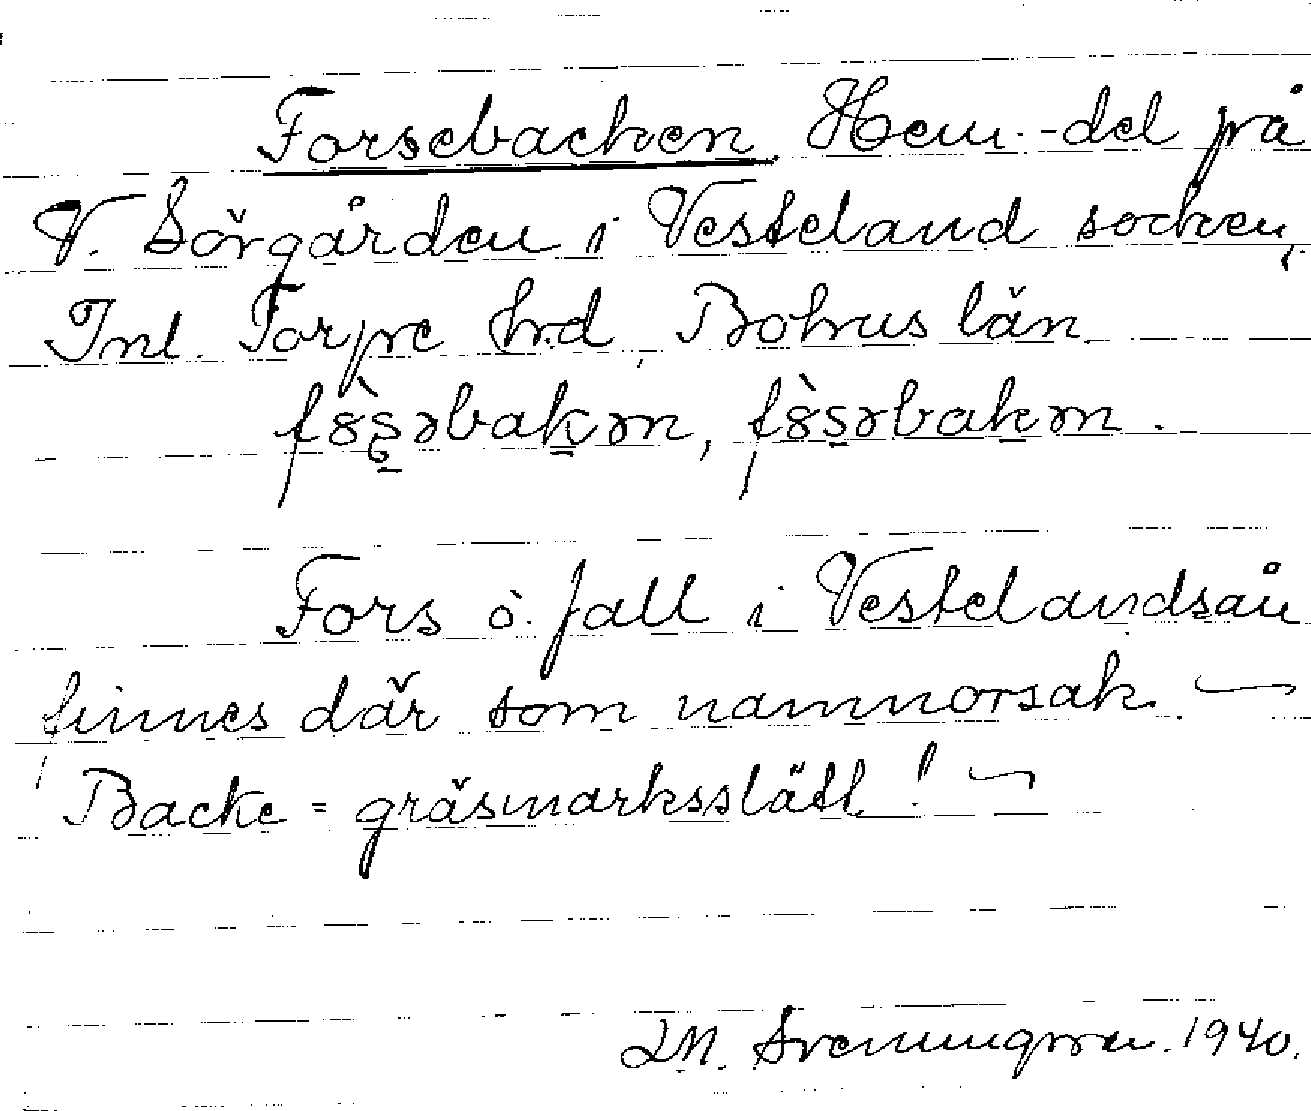 Forsebacken. Hem.-del på
V. Sörgården i Vesteland socken,
Inl. Torpe hrd, Bohus län.
f8̀s̱əbaḵən, f8̀s̱əbaḵən.
Fors o. fall i Vestelandsån
finnes där som namnorsak. —
Backe = gräsmarksslätt! —
J.M. Svenungsson. 1940.